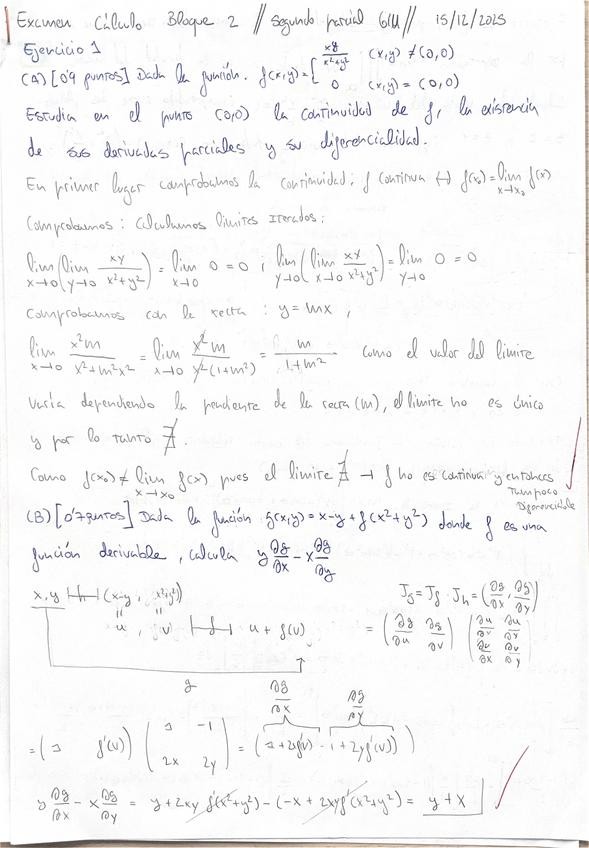 Examen Cálculo Bloque 2 // segundo parcial GIU // 15/12/2025
Ejercicio 1
(A) [0'9 puntos] Dada la función. f(x,y) = { xy/(x²+y²) (x,y) ≠ (0,0)
0 (x,y) = (0,0)
Estudia en el punto (0,0) la continuidad de f, la existencia
de sus derivadas parciales y su diferencialidad.
En primer lugar comprobamos la continuidad; f continua ↔ f(x₀) = lim x→x₀ f(x)
Comprobamos: Calculamos límites iterados:
lim x→0 (lim y→0 xy/(x²+y²)) = lim x→0 0 = 0 ; lim y→0 (lim x→0 xy/(x²+y²)) = lim y→0 0 = 0
Comprobamos con la recta : y = mx ,
lim x→0 x²m/(x²+m²x²) = lim x→0 x²m/(x²(1+m²)) = m/(1+m²) como el valor del límite
varía dependiendo la pendiente de la recta (m), el límite no es único
y por lo tanto ∄.
Como f(x₀) ≠ lim x→x₀ f(x) pues el límite ∄ → f no es continua y entonces
tampoco
Diferenciable
(B) [0'7 puntos] Dada la función g(x,y) = x-y + f(x²+y²) donde f es una
función derivable, calcula y ∂g/∂x - x ∂g/∂y
x,y |-h-| (x-y, x²+y²)
J_g = J_f · J_h = (∂g/∂x, ∂g/∂y)
u , v |-f-| u + f(v)
= (∂g/∂u ∂g/∂v) (∂u/∂x ∂u/∂y
∂v/∂x ∂v/∂y)
g ∂g/∂x ∂g/∂y
= (1 f'(v)) (1 -1
2x 2y) = (1+2xf'(v) -1+2yf'(v))
y ∂g/∂x - x ∂g/∂y = y+2xy f'(x²+y²) - (-x + 2xyf'(x²+y²)) = y+x